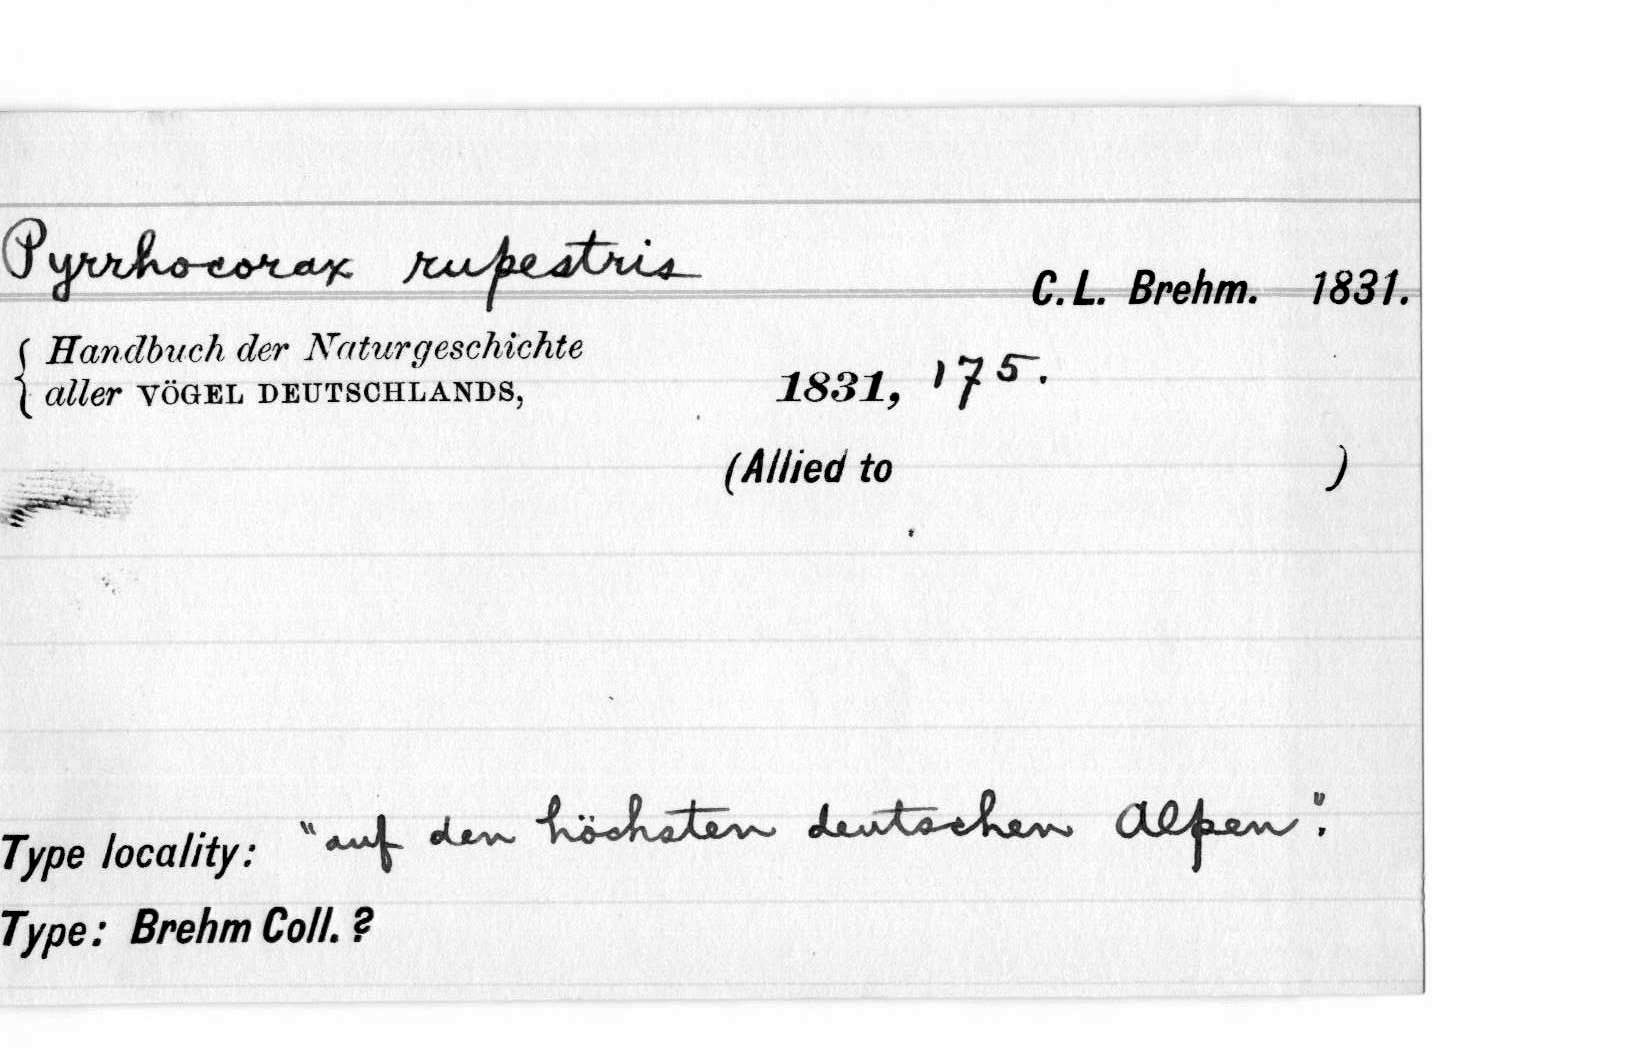 Pyrrhocorax rupestris C. L. Brehm. 1831.
{ Handbuch der Naturgeschichte
aller VÖGEL DEUTSCHLANDS, 1831, 175.
(Allied to )
Type locality: "auf den höchsten deutschen Alpen".
Type: Brehm Coll. ?